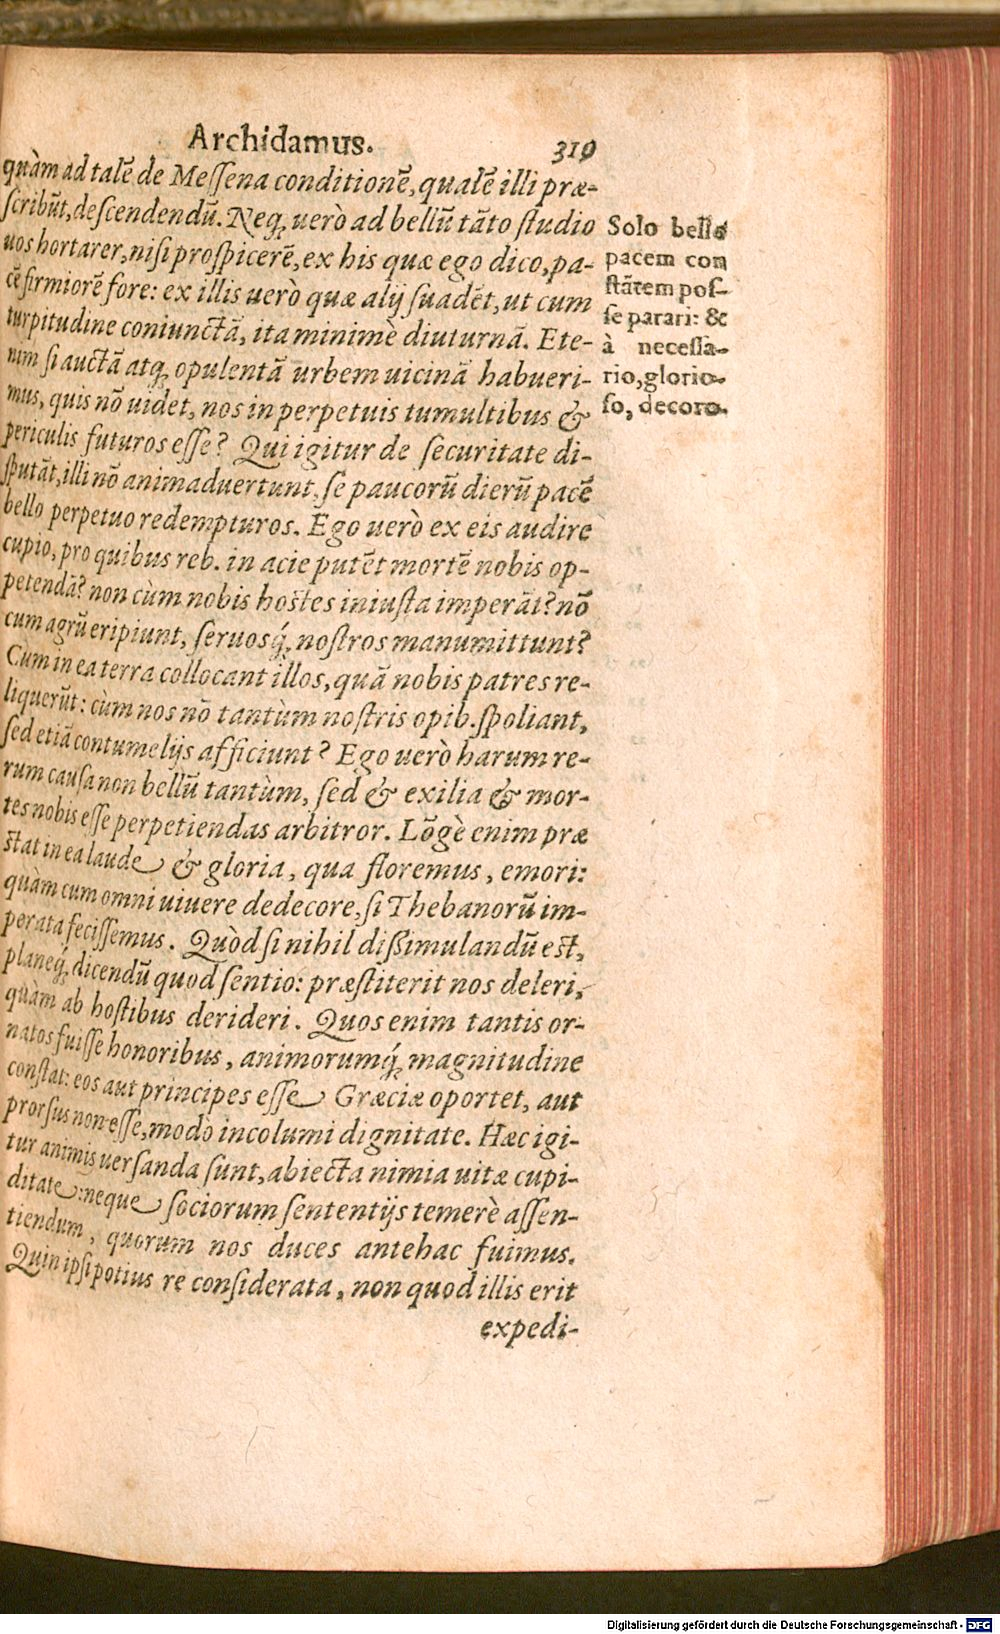 Archidamus. 319
quàm ad talẽ de Meſſena conditionẽ, qualẽ illi præ-
ſcribũt, deſcendendũ. Neq; uerò ad bellũ tãto ſtudio
uos hortarer, niſi proſpicerẽ, ex his quæ ego dico, pa-
cẽ firmiorẽ fore: ex illis uerò quæ alij ſuadẽt, ut cum
turpitudine coniunctã, ita minimè diuturnã. Ete-
nim ſi auctã atq; opulentã urbem uicinã habueri-
mus, quis nõ uidet, nos in perpetuis tumultibus &
periculis futuros eſſe? Qui igitur de ſecuritate di-
ſputãt, illi nõ animaduertunt, ſe paucorũ dierũ pacẽ
bello perpetuo redempturos. Ego uerò ex eis audire
cupio, pro quibus reb. in acie putẽt mortẽ nobis op-
petendã? non cùm nobis hoſtes iniuſta imperãt? nõ
cum agrũ eripiunt, ſeruosq́; noſtros manumittunt?
Cùm in ea terra collocant illos, quã nobis patres re-
liquerũt: cùm nos nõ tantùm noſtris opib. ſpoliant,
ſed etiã contumelijs afficiunt? Ego uerò harum re-
rum cauſa non bellũ tantùm, ſed & exilia & mor-
tes nobis eſſe perpetiendas arbitror. Lõgè enim præ
ſtat in ea laude & gloria, qua floremus, emori:
quàm cum omni uiuere dedecore, ſi Thebanorũ im-
perata feciſſemus. Quòd ſi nihil diſsimulandũ eſt,
planeq́; dicendũ quod ſentio: præſtiterit nos deleri,
quàm ab hoſtibus derideri. Quos enim tantis or-
natos fuiſſe honoribus, animorumq́; magnitudine
conſtat: eos aut principes eſſe Græciæ oportet, aut
prorſus non eſſe, modò incolumi dignitate. Hæc igi-
tur animis uerſanda ſunt, abiecta nimia uitæ cupi-
ditate: neque ſociorum ſententijs temerè aſſen-
tiendum, quorum nos duces antehac fuimus.
Quin ipſi potius re conſiderata, non quod illis erit
expedi-
Solo bello
pacem con
ſtãtem poſ-
ſe parari: &
à neceſſa-
rio, glorio-
ſo, decoro.
Digitalisierung gefördert durch die Deutsche Forschungsgemeinschaft - DFG